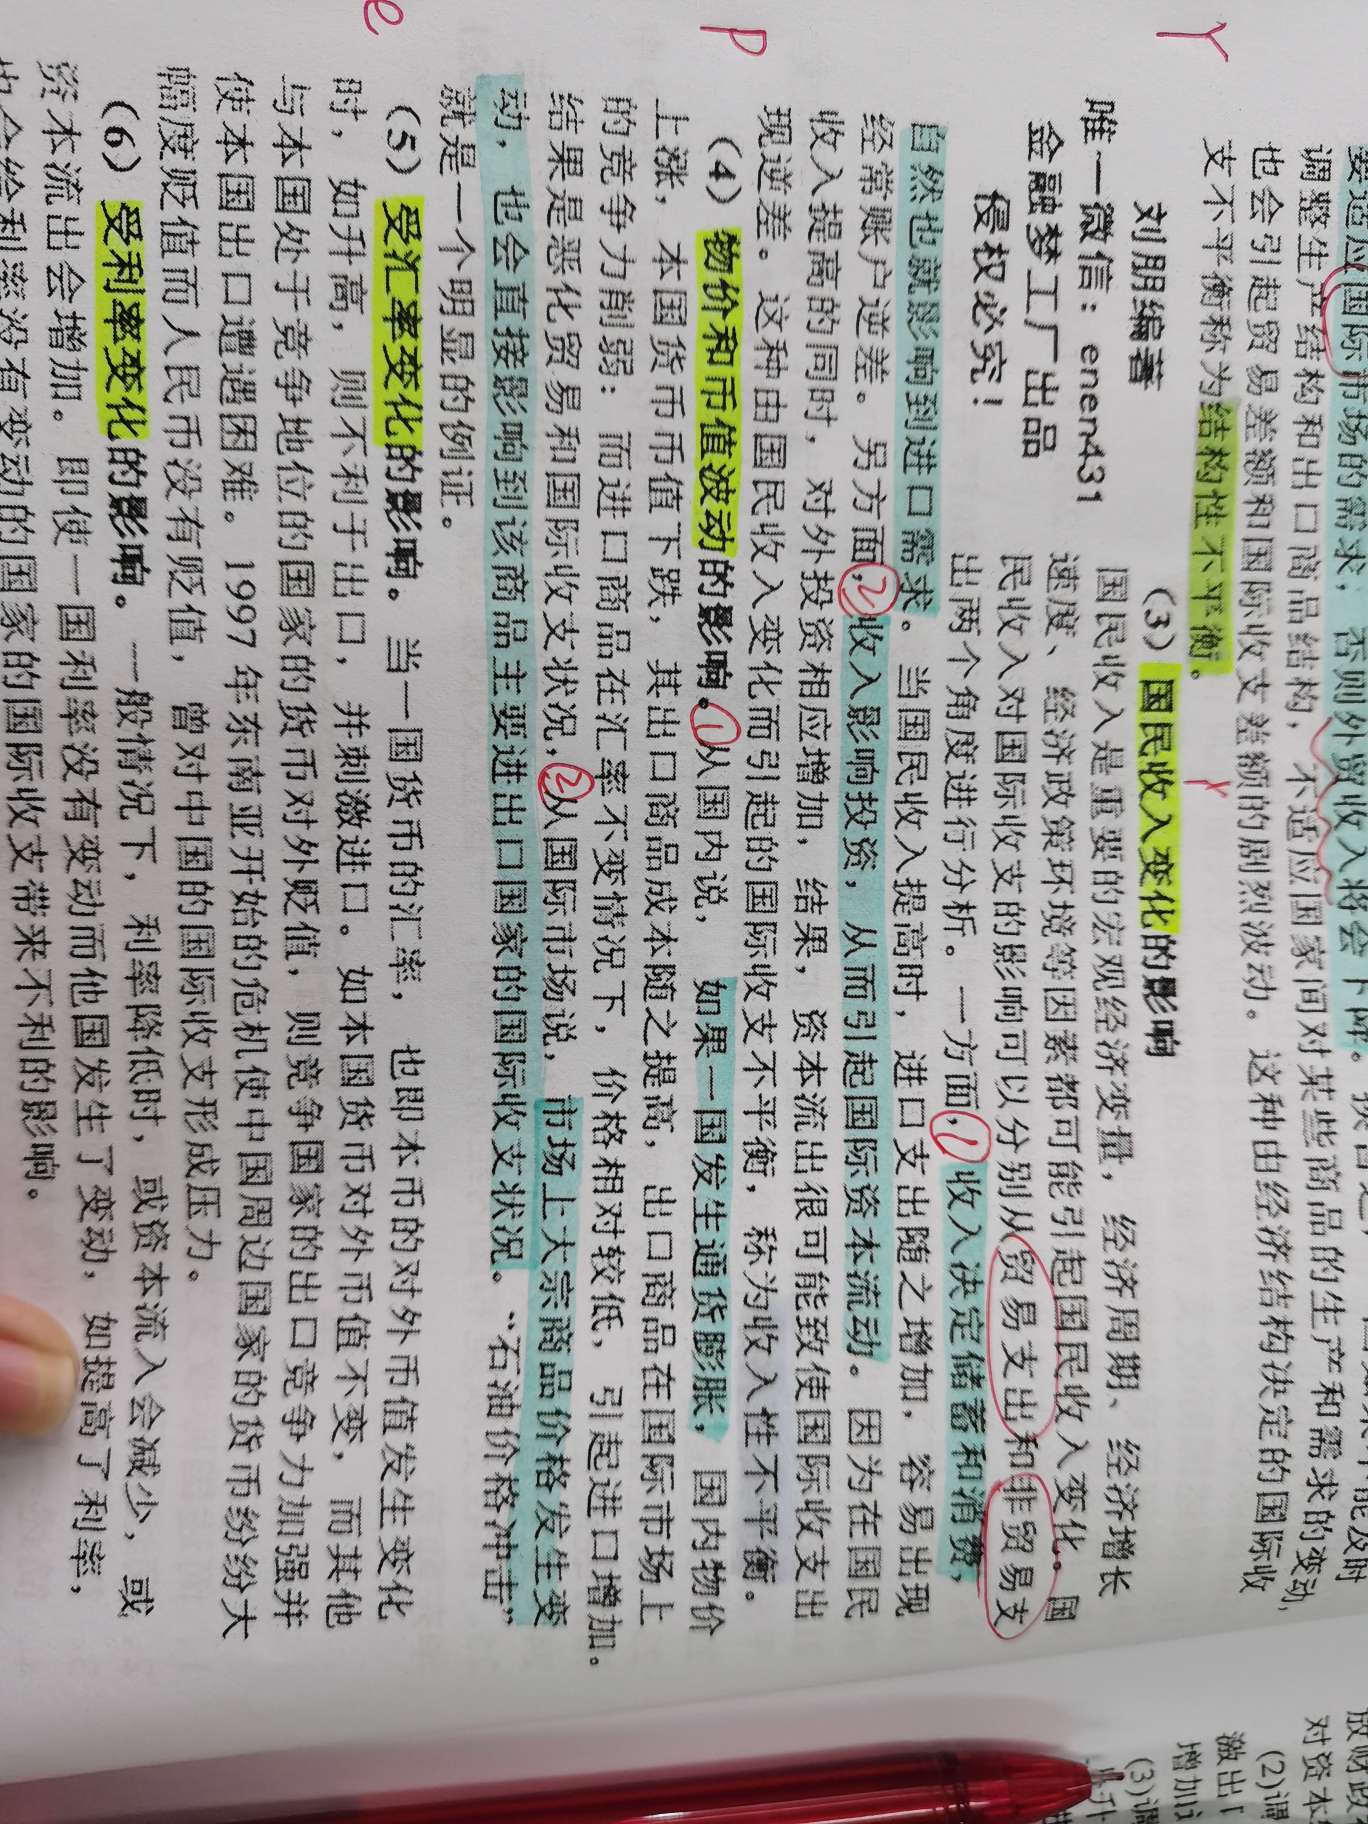 要适应国际市场的需求，否则外贸收入将会下降。
调整生产结构和出口商品结构，不适应国家间对某些商品的生产和需求的变动，
也会引起贸易差额和国际收支差额的剧烈波动。这种由经济结构决定的国际收
支不平衡称为结构性不平衡。
Y
刘朋编著
唯一微信：enen431
金融梦工厂出品
侵权必究！
（3）国民收入变化的影响
国民收入是重要的宏观经济变量，经济周期、经济增长
速度、经济政策环境等因素都可能引起国民收入变化。国
民收入对国际收支的影响可以分别从贸易支出和非贸易支
出两个角度进行分析。一方面，①收入决定储蓄和消费，
自然也就影响到进口需求。当国民收入提高时，进口支出随之增加，容易出现
经常账户逆差。另方面，②收入影响投资，从而引起国际资本流动。因为在国民
收入提高的同时，对外投资相应增加，结果，资本流出很可能致使国际收支出
现逆差。这种由国民收入变化而引起的国际收支不平衡，称为收入性不平衡。
P
（4）物价和币值波动的影响。①从国内说，如果一国发生通货膨胀，国内物价
上涨，本国货币币值下跌，其出口商品成本随之提高，出口商品在国际市场上
的竞争力削弱；而进口商品在汇率不变情况下，价格相对较低，引起进口增加。
结果是恶化贸易和国际收支状况，②从国际市场说，市场上大宗商品价格发生变
动，也会直接影响到该商品主要进出口国家的国际收支状况。“石油价格冲击”
就是一个明显的例证。
e
（5）受汇率变化的影响。当一国货币的汇率，也即本币的对外币值发生变化
时，如升高，则不利于出口，并刺激进口。如本国货币对外币值不变，而其他
与本国处于竞争地位的国家的货币对外贬值，则竞争国家的出口竞争力加强并
使本国出口遭遇困难。1997年东南亚开始的危机使中国周边国家的货币纷纷大
幅度贬值而人民币没有贬值，曾对中国的国际收支形成压力。
（6）受利率变化的影响。一般情况下，利率降低时，或资本流入会减少，或
资本流出会增加。即使一国利率没有变动而他国发生了变动，如提高了利率，
也会给利率没有变动的国家的国际收支带来不利的影响。
对资本
(2)调
激出
增加
(3)调